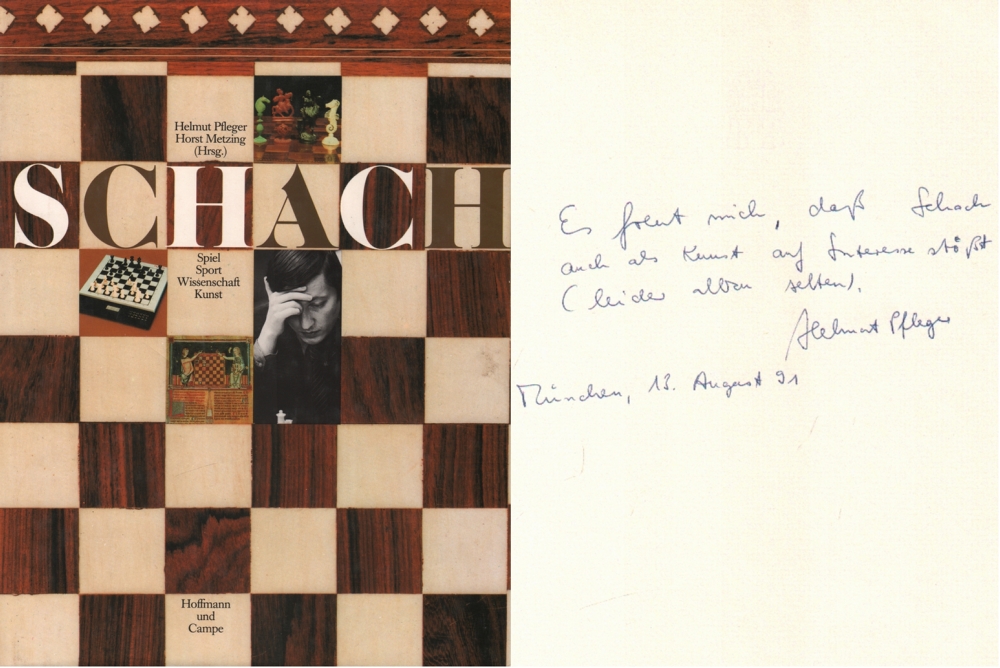 Helmut Pfleger
Horst Metzing
(Hrsg.)
SCHACH
Spiel
Sport
Wissenschaft
Kunst
Hoffmann
und
Campe
Es freut mich, daß Schach
auch als Kunst auf Interesse stößt
(leider allzu selten).
Helmut Pfleger
München, 13. August 91